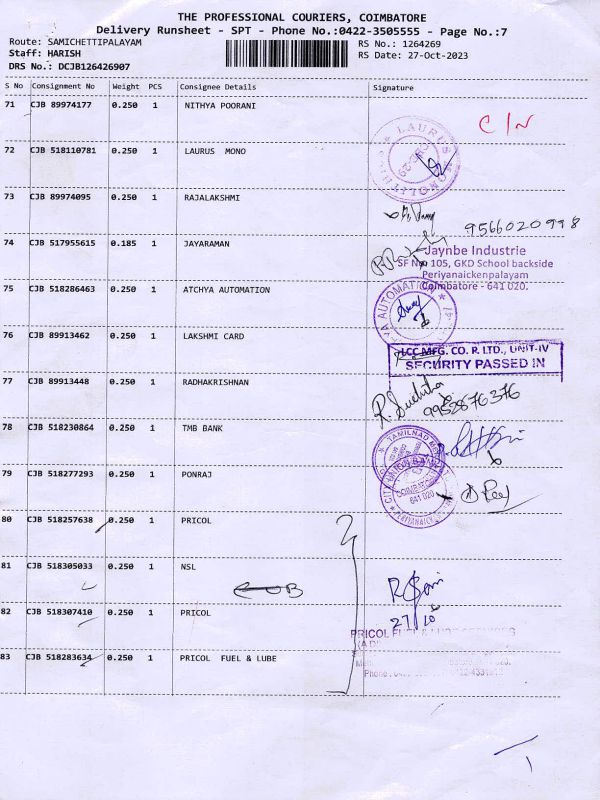 THE PROFESSIONAL COURIERS, COIMBATORE
Delivery Runsheet - SPT - Phone No.:0422-3505555 - Page No.:7
Route: SAMICHETTIPALAYAM
RS No.: 1264269
Staff: HARISH
RS Date: 27-Oct-2023
DRS No.: DCJB126426907
S No Consignment No Weight PCS Consignee Details Signature
71 CJB 89974177 0.250 1 NITHYA POORANI
C/N
72 CJB 518110781 0.250 1 LAURUS MONO
73 CJB 89974095 0.250 1 RAJALAKSHMI
9566020998
74 CJB 517955615 0.185 1 JAYARAMAN
Jaynbe Industrie
SF No 105, GKD School backside
Periyanaickenpalayam
Coimbatore - 641 020.
75 CJB 518286463 0.250 1 ATCHYA AUTOMATION
AUTOMATION
76 CJB 89913462 0.250 1 LAKSHMI CARD
LCC MFG. CO. P. LTD., UNIT-IV
SECURITY PASSED IN
77 CJB 89913448 0.250 1 RADHAKRISHNAN
9952876376
78 CJB 518230864 0.250 1 TMB BANK
TAMILNAD
79 CJB 518277293 0.250 1 PONRAJ
CITY UNION BANK
COIMBATORE
641 020
80 CJB 518257638 0.250 1 PRICOL
81 CJB 518305033 0.250 1 NSL
82 CJB 518307410 0.250 1 PRICOL
27/10
PRICOL FUEL & LUBE SERVICES
83 CJB 518283634 0.250 1 PRICOL FUEL & LUBE